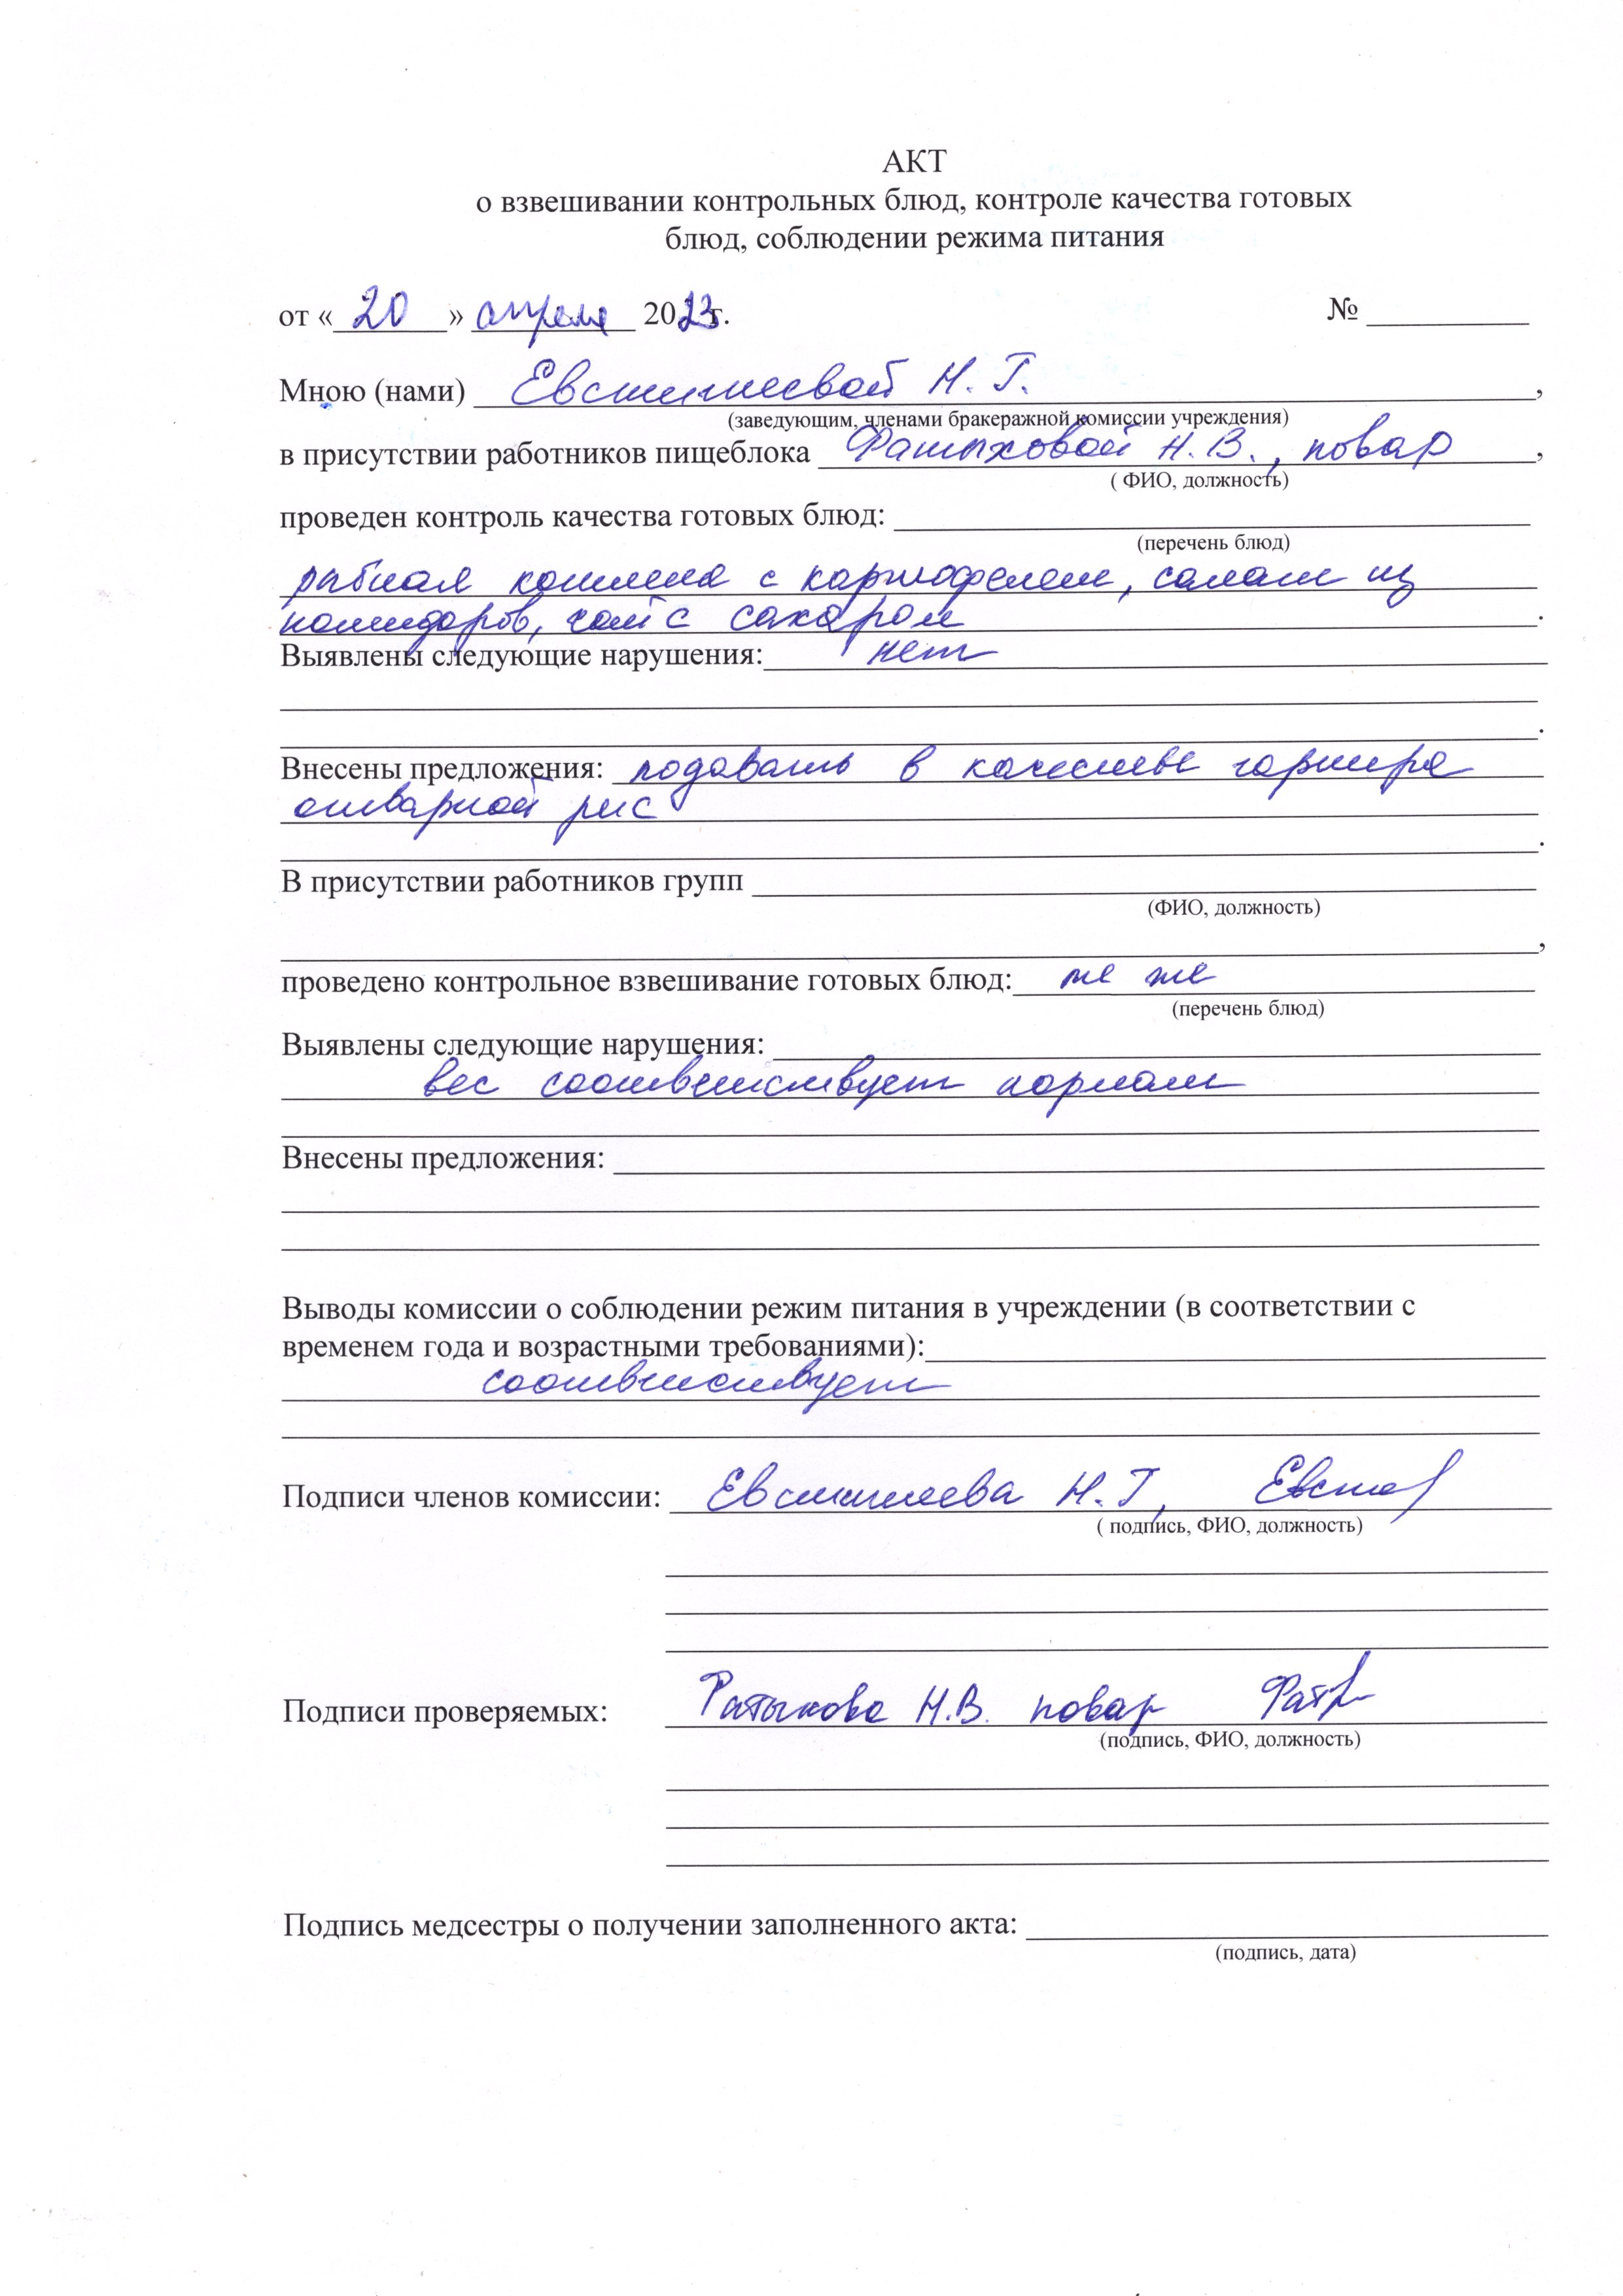 АКТ
о взвешивании контрольных блюд, контроле качества готовых
блюд, соблюдении режима питания
от « 20 » апреля 2023 г. № ___________
Мною (нами) Н. Г. ,
(заведующим, членами бракеражной комиссии учреждения)
в присутствии работников пищеблока Фатыховой Н. В., повар ,
( ФИО, должность)
проведен контроль качества готовых блюд: ___________
(перечень блюд)
рыбная котлета с картофелем, салат из
помидоров, чай с сахаром .
Выявлены следующие нарушения: нет
.
Внесены предложения: подавать в качестве гарнира
отварной рис
.
В присутствии работников групп ___________
(ФИО, должность)
,
проведено контрольное взвешивание готовых блюд: же
(перечень блюд)
Выявлены следующие нарушения: ___________
вес соответствует нормам
Внесены предложения: ___________
Выводы комиссии о соблюдении режим питания в учреждении (в соответствии с
временем года и возрастными требованиями): ___________
соответствует
Подписи членов комиссии: Н. Г,
( подпись, ФИО, должность)
Подписи проверяемых: Н.В. повар
(подпись, ФИО, должность)
Подпись медсестры о получении заполненного акта: ___________
(подпись, дата)